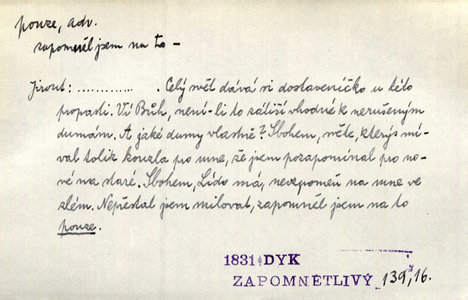 pouze, adv.
zapomněl jsem na to –
Jirout: ............. . Celý svět dává si dostaveníčko u této
propasti. Ví Bůh, není-li to zátiší vhodné k nerušeným
dumám. A jaké dumy vlastně? Sbohem, světe, kterýs mí-
val tolik kouzla pro mne, že jsem pozapomínal pro no-
vé na staré. Sbohem, Lído má, nevzpomeň na mne ve
zlém. Nepřestal jsem milovat, zapomněl jsem na to
pouze.
1831 DYK
ZAPOMNĚTLIVÝ 139, 16.